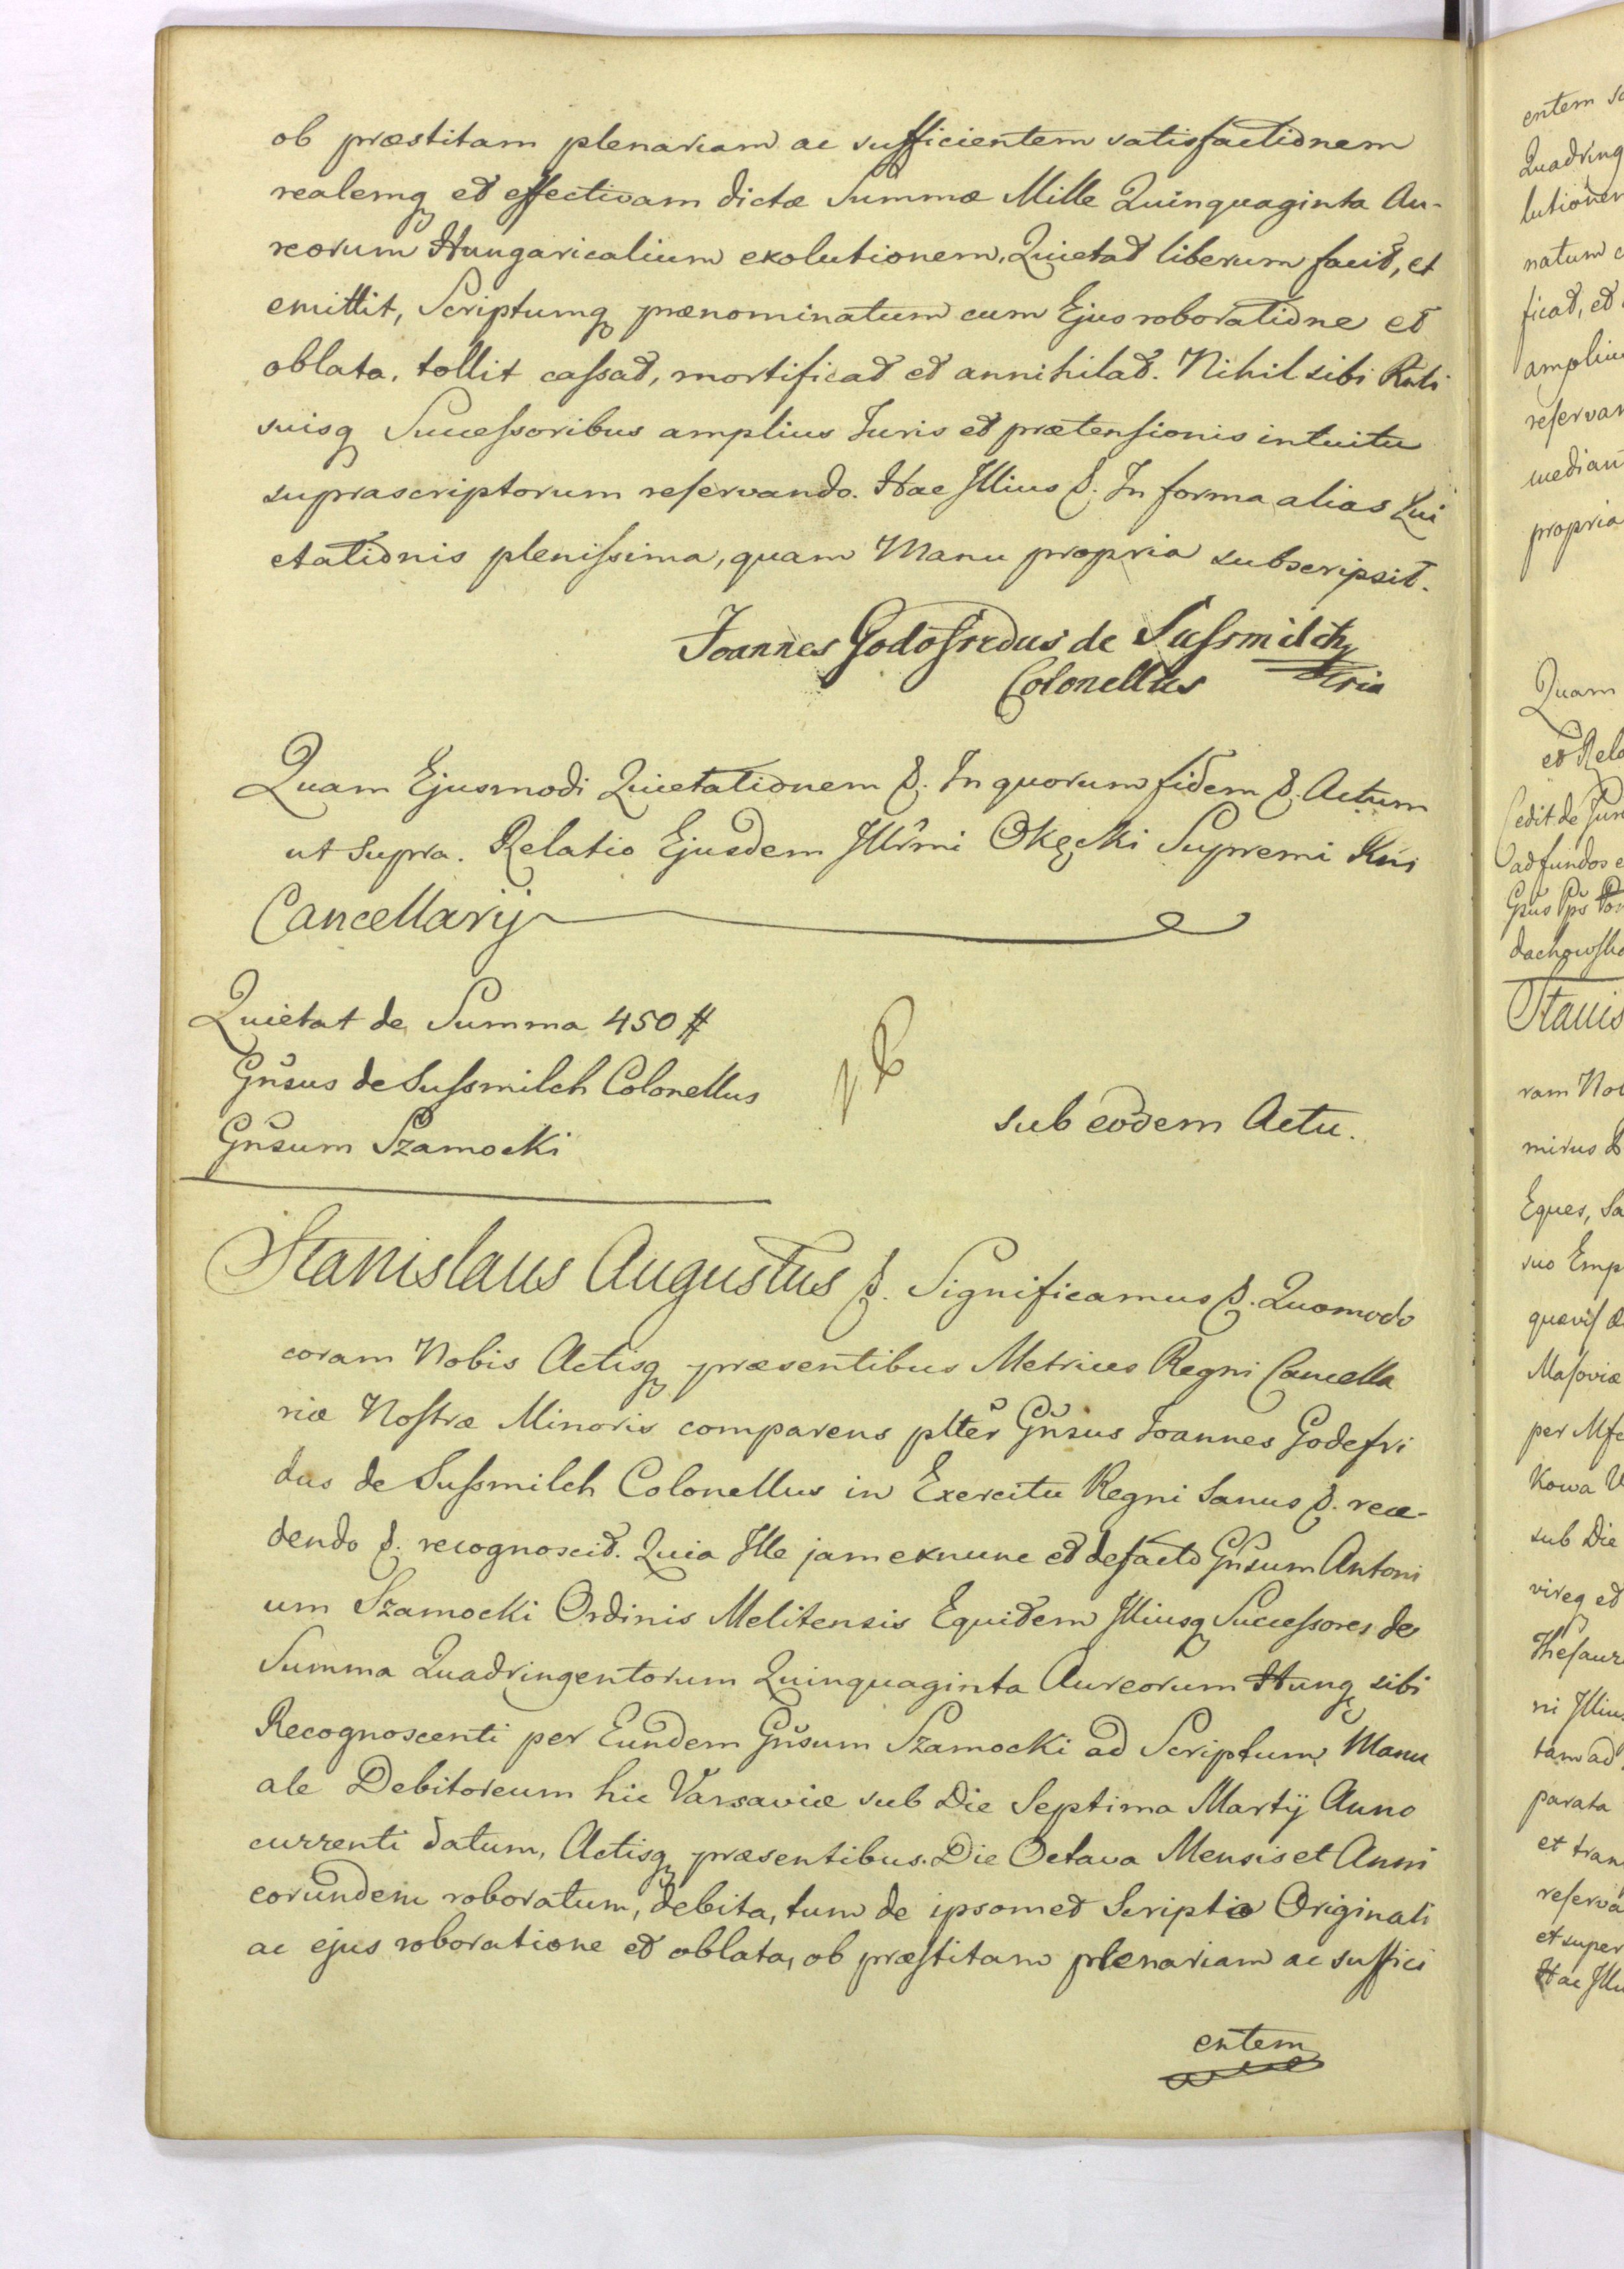 ob præstitam plenariam ac sufficientem satisfactionem
realemq et effectivam dictæ Summæ Mille Quinquaginta Au-
reorum Hungaricalium exolutionem, Quietat liberum facit, et
emittit, Scriptumq prænominatum cum Ejus roboratione et
oblata, tollit cassat, mortificat et annihilat. Nihil sibi
suisq Successoribus amplius Juris et prætensionis intuitu
suprascriptorum reservando. Hac Illius &. In forma alias Qui
etationis plenissima, quam Manu propria subscripsit.
Joannes Godofredus de Sussmilch
Colonellus
Quam Ejusmodi Quietationem &. In quorum fidem &. Actum
ut supra. Relatio Ejusdem Illrmi Okęcki Supremi Rni
Cancellarij
Quietat de Summa 450 #
Gnsus de Sussmilch Colonellus
Gnsum Szamocki
sub eodem Actu.
Stanislaus Augustus &. Significamus &. Quomodo
coram Nobis Actisq præsentibus Metrices Regni Cancella
riæ Nostræ Minoris comparens pltter Gnsus Joannes Godefri
dus de Sussmilch Colonellus in Exercitu Regni Sanus &. rece-
dendo &. recognoscit. Quia Ille jam exnunc et defacto Gnsum Antoni
um Szamocki Ordinis Melitensis Equidem Illiusq Successores de
Summa Quadringentorum Quinquaginta Aureorum Hung sibi
Recognoscenti per Eundem Gnsum Szamocki ad Scriptum Manu
ale Debitoreum hic Varsaviæ sub Die Septima Martij Anno
currenti datum, Actisq præsentibus Die Octava Mensis et Anni
eorundem roboratum, debita, tum de ipsomet Scripto Originali
ac ejus roboratione et oblata, ob præstitam plenariam ac suffici
entem
entem
Quadring
lutionem
natum c
ficat, et
amplius
reservan
median
propria
Quam
et Rela
cedit de Jur
ad fundos e
dachowsk
Stanis
ram Nob
mirus
Eques, Sa
suo Emp
quævis
Masoviæ
per Mfc
kowa W
sub Die
vireq et
Thesaur
ni Illius
tam ad
parata
et tran
reserva
et super
Hac Illiu